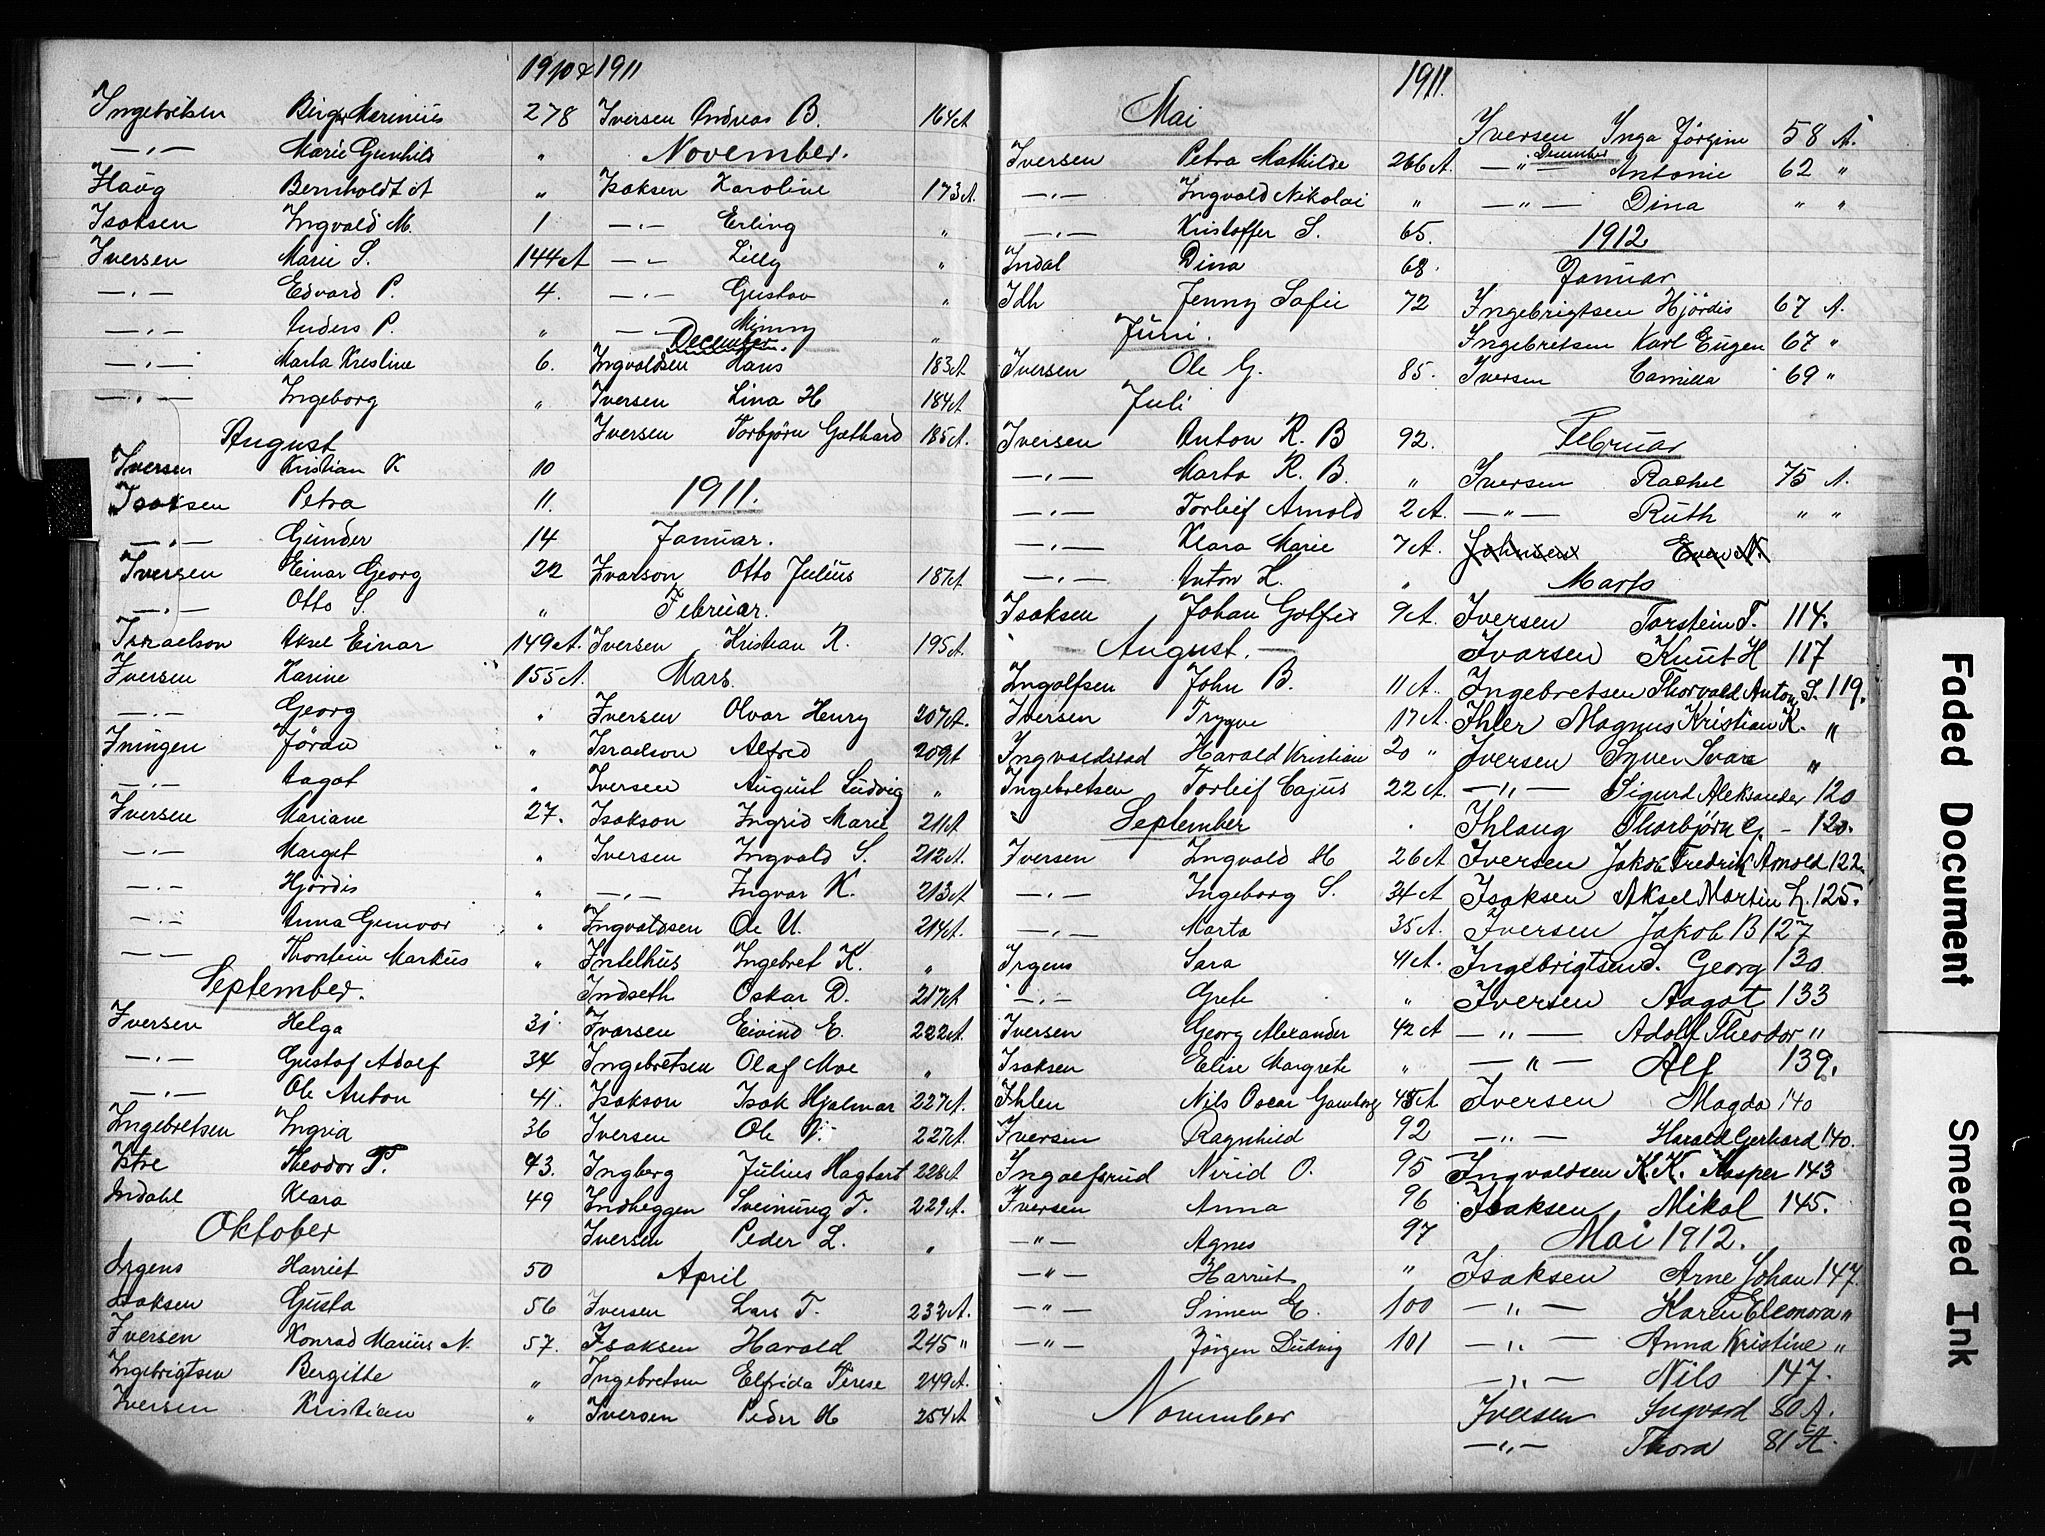 1910 & 1911
Ingebretsen Birger Marinius 278
—"— Marie Gunhild "
Haug Bernholdt A "
Isaksen Ingvald M. 1
Iversen Marie S. 144A
—"— Edvard P. 4.
—"— Anders P. "
—"— Marta Kristine 6.
—"— Ingeborg "
August
Iversen Kristian K 10
Isaksen Petra 11.
—"— Gunder 14
Iversen Einar Georg 22
—"— Otto S. "
Israelson Aksel Einar 149A.
Iversen Karine 155A.
—"— Georg "
Iningen Jöran "
—"— Aagot "
Iversen Mariane 27.
—"— Marget "
—"— Hjördis "
—"— Anna Gunvor "
—"— Thorstein Markus "
September.
Iversen Helga 31
—"— Gustaf Adolf 34
—"— Ole Anton 41.
Ingebretsen Ingrid 36
Istre Theodor T. 43.
Indahl Klara 49
Oktober
Irgens Harriet 50
Isaksen Gusta 56
Iversen Konrad Marius N. 57.
Ingebrigtsen Bergitte "
Iversen Kristian "
Iversen Andreas B. 164A
November.
Isaksen Karoline 173A.
—"— Erling "
—"— Lilly "
—"— Gustav "
—"— Mimmy "
December.
Ingvaldsen Hans 183A
Iversen Lina H 184A
Iversen Torbjørn Gotthard 185A.
1911.
Januar.
Ivarson Otto Julius 187A
Februar.
Iversen Kristian R. 195A.
Mars.
Iversen Olvar Henry 207A.
Israelson Alfred 209A
Iversen August Ludvig "
Isakson Ingrid Marie 211A
Iversen Ingvald S. 212A.
—"— Ingvar K. 213A
Ingvaldsen Ole U. 214A.
Intelhus Ingebret K. "
Indseth Oskar D. 217A
Ivarsen Eivind E. 222A.
Ingebretsen Olaf Moe "
Isakson Isak Hjalmar 227A.
Iversen Ole V. 227A.
Ingberg Julius Hagbart 228A
Indheggen Sveinung T. 229A.
Iversen Peder L. "
April
Iversen Lars T. 232A.
Isaksen Harald 245 "
Ingebretsen Elfrida Terese 249A.
Iversen Peder H 254A
1911.
Mai
Iversen Petra Mathilde 266A.
—"— Ingvald Nikolai "
—"— Kristoffer S. 65.
Indal Dina 68.
Idh Jenny Sofie 72
Juni.
Iversen Ole G. 85.
Juli
Iversen Anton R. B 92.
—"— Marta R. B. "
—"— Torleif Arnold 2A.
—"— Klara Marie 7A.
—"— Anton L. "
Isaksen Johan Gotfred 9A.
August.
Ingolfsen John B. 11A.
Iversen Trygve 17A.
Ingvaldstad Harald Kristian 20 "
Ingebretsen Torleif Cajus 22A.
September
Iversen Ingvald H 26A
—"— Ingeborg S. 34A
—"— Marta 35A.
Irgens Sara 41A.
—"— Grete "
Iversen Georg Alexander 42A
Isaksen Elise Margrete "
Ihlen Nils Oscar Gamborg 45A
Iversen Ragnhild 92
Ingolfsrud Nirid O. 95
Iversen Anna 96
—"— Agnes 97
—"— Harriet "
—"— Simen E. 100
—"— Jörgen Ludvig 101
November
Iversen Inga Jörgine 58 A.
December
—"— Antonie 62 "
—"— Dina " "
1912
Januar
Ingebrigtsen Hjördis 67 A.
Ingebretsen Karl Eugen 67 "
Iversen Camilla 69 "
Februar
Iversen Rachel 75 A.
—"— Ruth " "
Johnsen Even N.
Marts
Iversen Torstein T. 114.
Ivarsen Knut H 117
Ingebretsen Thorvald Anton S. 119.
Ihler Magnus Kristian K. "
Iversen Syver Svare "
—"— Sigurd Aleksander 120
Ihlang Thorbjørn G. - 120.
Iversen Jakob Fredrik Arnold 122
Isaksen Aksel Martin L. 125.
Iversen Jakob B 127
Ingebrigtsen d. Georg 130
Iversen Aagot 133
—"— Adolf Theodor "
—"— Alf 139.
Iversen Magda 140
—"— Harald Gerhard 140.
Ingvaldsen K. K. Kasper 143
Isaksen Mikal 145.
Mai 1912.
Isaksen Arne Johan 147
—"— Karen Eleonora "
—"— Anna Kristine "
—"— Nils 147.
Iversen Ingvard 80A.
—"— Thora 81A.
Faded Document
Smeared Ink